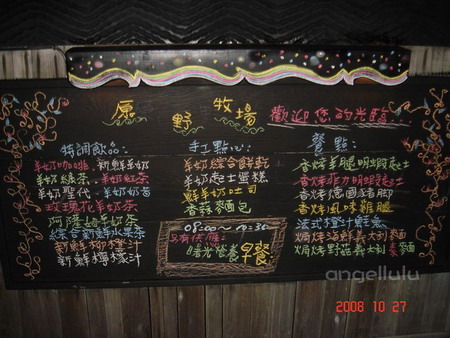 原野牧場
歡迎您的光臨
特調飲品:
羊奶咖啡. 新鮮羊奶
羊奶綠茶. 羊奶紅茶
羊奶聖代. 羊奶奶昔
玫瑰花羊奶茶
阿薩姆羊奶茶
綜合新鮮水果茶
新鮮柳橙汁
新鮮檸檬汁
手工點心:
羊奶綜合餅乾
羊奶起士蛋糕
鮮羊奶吐司
香蒜麵包
08:00~10:30
只有供應
陽光營養早餐
餐點:
香烤羊腿明蝦起士
香烤菲力明蝦起士
香烤德國豬腳
香烤風味雞腿
法式橙汁鱈魚
焗烤海鮮義大利麵
焗烤野菇義大利素麵
angellulu
2008 10 27